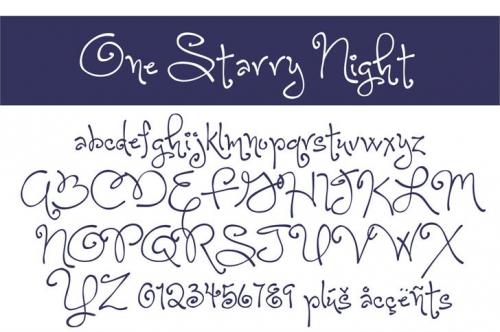 One Starry Night
abcdefghijklmnopqrstuvwxyz
ABCDEFGHIJKLM
NOPQRSTUVWX
YZ 0123456789 plúš åccçëñts